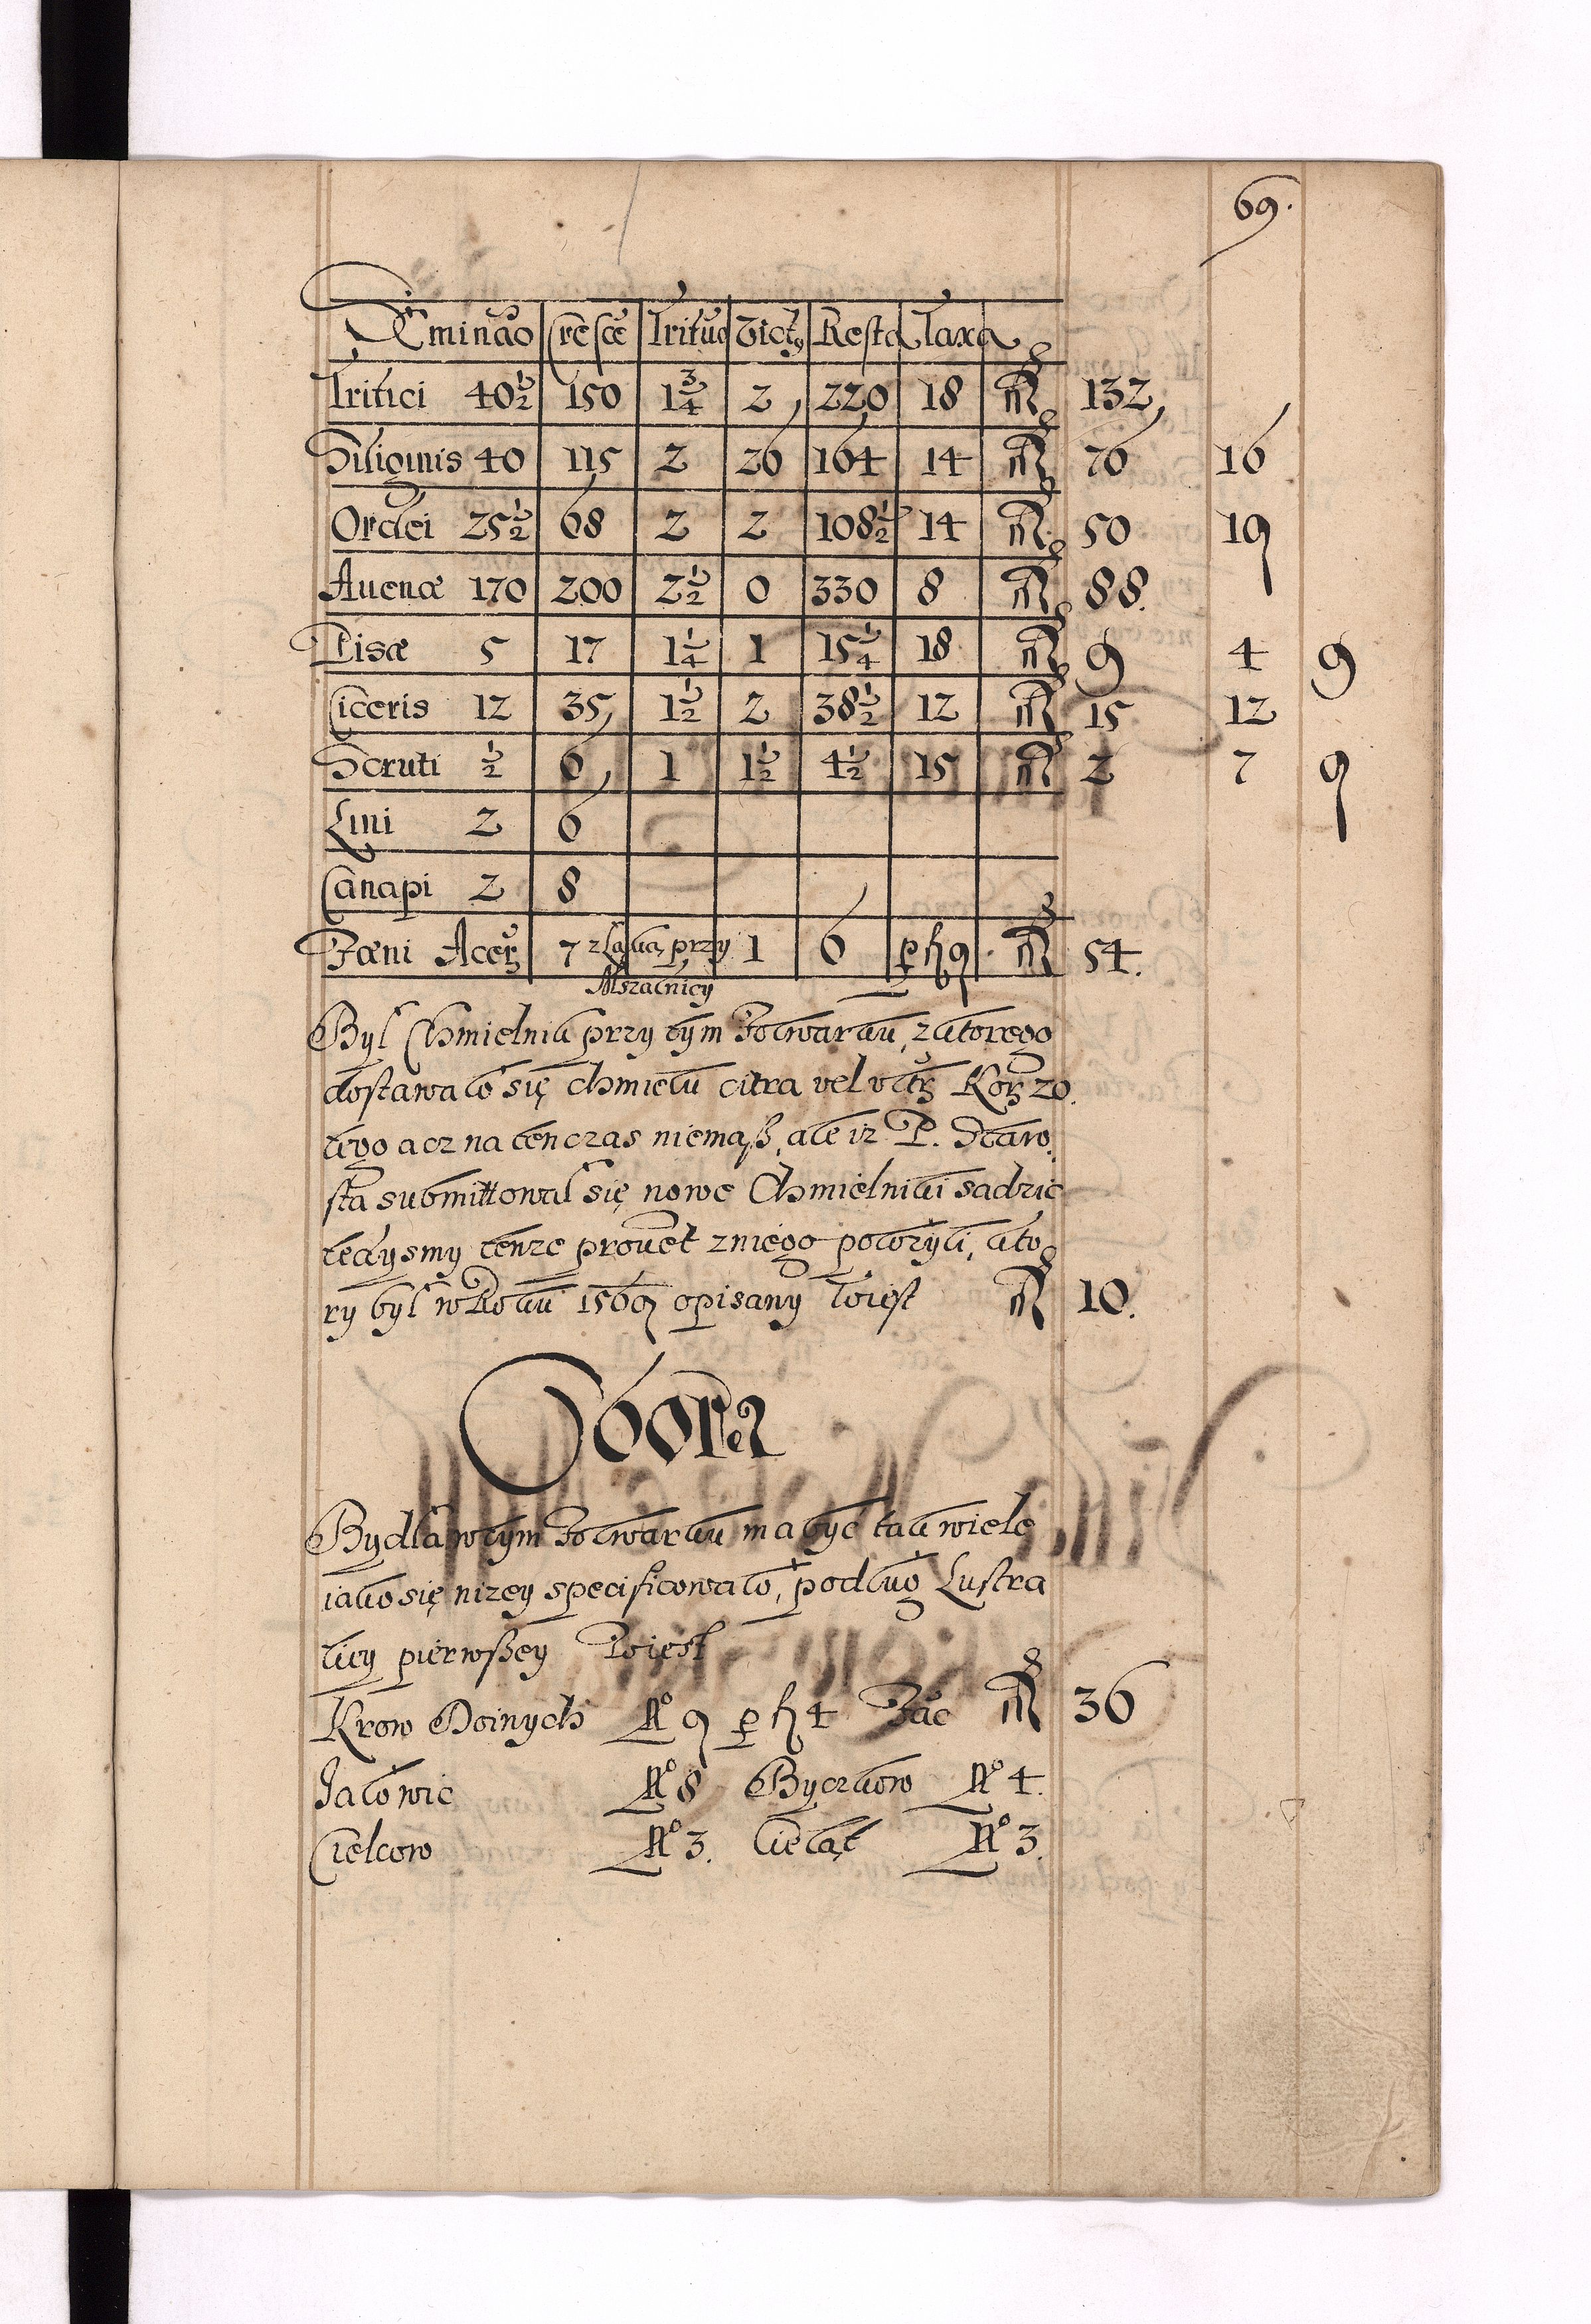 69.
Seminao Cresce Trituo Vict9 Resta Taxa
Tritici 40½ 150 1¾ 2 220 18 fl 132
Siliginis 40 115 2 26 164 14 fl 76 16
Ordei 25½ 68 2 2 108½ 14 fl 50 19
Auenæ 170 200 2½ 0 330 8 fl 88.
Pisæ 5 17 1¼ 1 15¼ 18 fl 9 4 9
Ciceris 12 35 1½ 2 38½ 12 fl 15 12
Scruti ½ 6 1 1½ 4½ 15 fl 2 7 9
Lini 2 6
Canapi 2 8
Fœni Acer 7 z łąką przy 1 6 p fl 9. fl 54.
Mszalnicy
Był Chmielnik przy tym Folwarku, z ktorego
dostawało się chmielu citra vel vltr Kor 20.
tego acz na ten czas niemasz, ale iz P. Staro,
sta submittował się nowe Chmielniki sadzic
tedysmy tenze prouēt z niego położyli, kto
ry był w Roku 1569 opisany To iest fl 10.
Obora
Bydła w tym Folwarku ma być tak wiele
iako się nizey specificowało, podług Lustra
tiey pierwszey To iest
Krow Doinych No 9 p fl 4 Fac fl 36
Jałowic No 8 Byczkow No 4.
Cielcow No 3. Cieląt No 3.